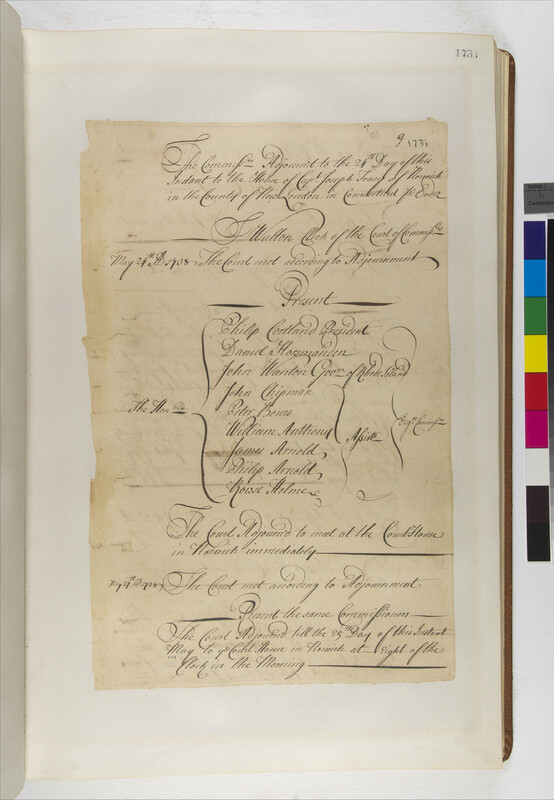 1731
9 1731
The Commissrs Adjourned to the 24th Day of this
Instant to the House of Capt Joseph Tracy of Norwich
in the County of New London in Connecticut
T Walton Clerk of the Court of Commissrs
May 24th AD 1738 The Court met according to Adjournment
Present
Philip Cortland President
Daniel Horsmanden
John Wanton Govr of Rhode Island
John Chipman
Peter Bours
The Honble
William Anthony
Assists
Esqrs Commissrs
James Arnold
Philip Arnold
Rouse Helme
The Court Adjournd to met at the Court House
in Norwich immediately
May 24th AD 1738 The Court met acording to Adjournment
Present the same Commissioners
The Court Adjournd till the 25th Day of this Instant
May to ye Court House in Norwich at Eight of the
Clock in the Morning